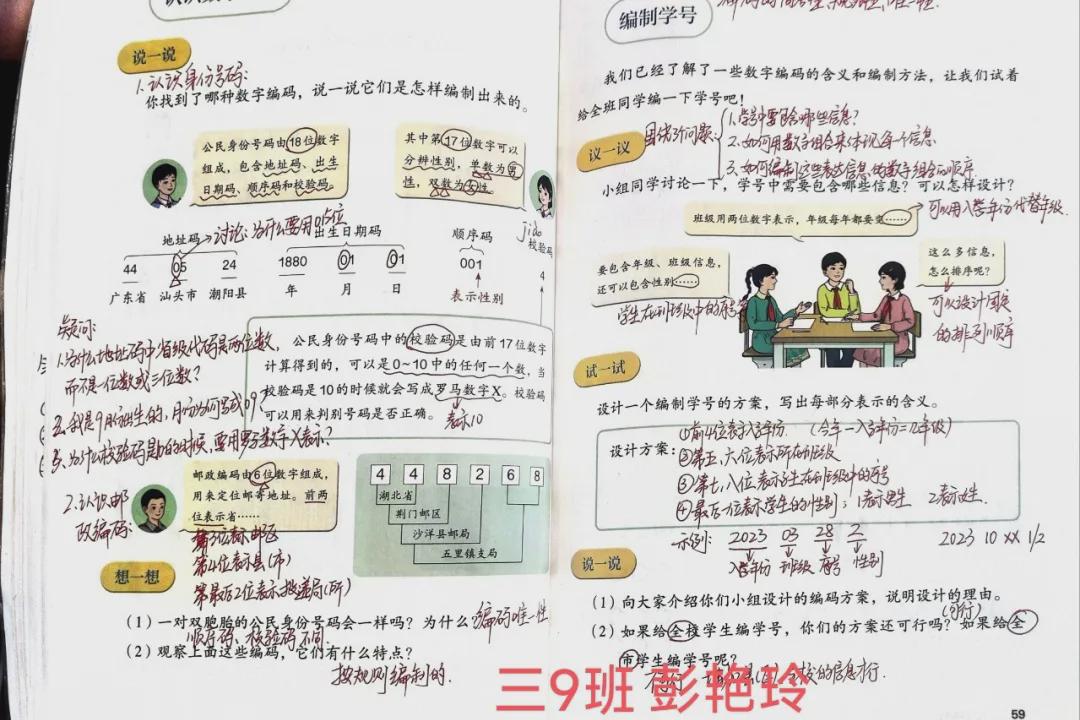 说一说
1.认识身份号码:
你找到了哪种数字编码，说一说它们是怎样编制出来的。
公民身份号码由18位数字
组成，包含地址码、出生
日期码、顺序码和校验码。
其中第17位数字可以
分辨性别，单数为男
性，双数为女性。
地址码→讨论:为什么要用05位
出生日期码
顺序码
校验码
44 05 24
1880 01 01
001
4
广东省 汕头市 潮阳县
年 月 日
表示性别
疑问:
1.为什么地址码中省级代码是两位数,
而不是一位数或三位数?
2.我是9月份出生的,月份为何写成09?
3.为什么校验码是10的时候,要用罗马数字X表示?
公民身份号码中的校验码是由前17位数字
计算得到的，可以是0~10中的任何一个数，当
校验码是10的时候就会写成罗马数字X。校验码
可以用来判别号码是否正确。
表示10
2.认识邮
政编码:
邮政编码由6位数字组成，
用来定位邮寄地址。前两
位表示省……
第3位表示邮区
第4位表示县(市)
第最后2位表示投递局(所)
4 4 8 2 6 8
湖北省
荆门邮区
沙洋县邮局
五里镇支局
想一想
(1) 一对双胞胎的公民身份号码会一样吗？为什么?
编码唯一性
顺序码、校验码不同.
(2) 观察上面这些编码，它们有什么特点？
按规则编制的.
编制学号
我们已经了解了一些数字编码的含义和编制方法，让我们试着
给全班同学编一下学号吧！
议一议
围绕3个问题:
1.学号中要包含哪些信息?
2.如何用数字组合来体现每一个信息.
3.如何编制这些表达信息的数字组合的顺序.
小组同学讨论一下，学号中需要包含哪些信息？可以怎样设计？
班级用两位数字表示，年级每年都要变……
可以用入学年份代替年级.
要包含年级、班级信息，
还可以包含性别……
学生在班级中的序号等
这么多信息，
怎么排序呢？
可以设计固定
的排列顺序
试一试
设计一个编制学号的方案，写出每部分表示的含义。
设计方案:
①前4位表示入学年份. (今年-入学年份=几年级)
②第五、六位表示所在班级
③第七、八位表示学生在班级中的序号
④最后一位表示学生的性别; 1表示男生 2表示女生.
示例: 2023 03 28 2
2023 10 XX 1/2
入学年份 班级 序号 性别
说一说
(1) 向大家介绍你们小组设计的编码方案，说明设计的理由。
(可行)
(2) 如果给全校学生编学号，你们的方案还可行吗？如果给全
市学生编学号呢？
三9班 彭艳玲
59